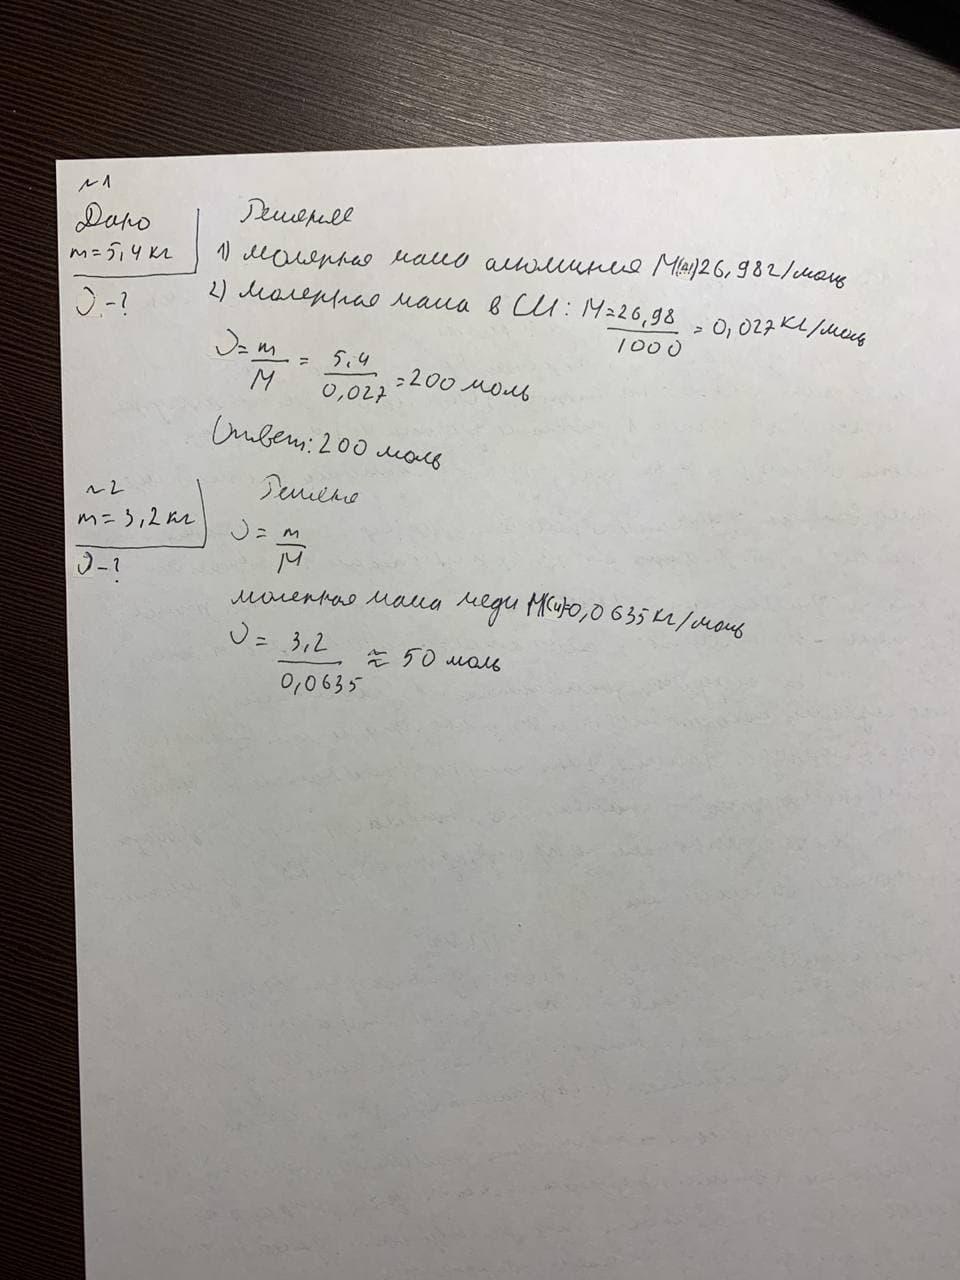 ~1
Дано
m=5,4 кг
ν-?
Решение
1) молярная масса алюминия M(Al)26,98г/моль
2) Молярная масса в СИ: M=26,98/1000 = 0,027 кг/моль
ν=m/M = 5,4/0,027 =200 моль
Ответ: 200 моль
~2
m=3,2 кг
ν-?
Решение
ν=m/M
молярная масса меди M(Cu)=0,0635кг/моль
ν= 3,2/0,0635 ≈ 50 моль